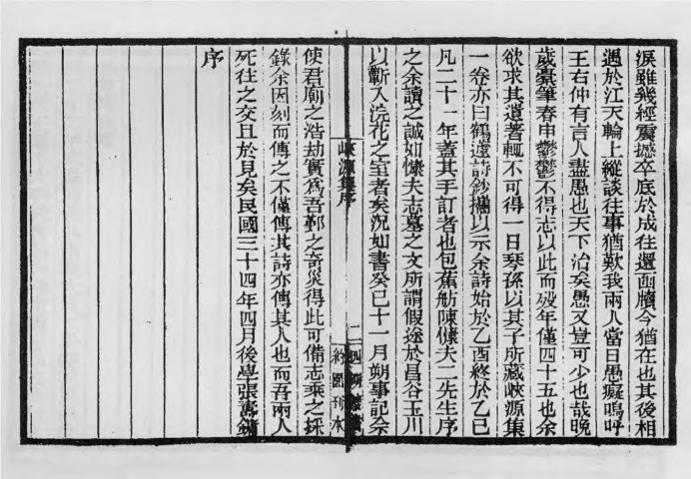 淚雖幾經震撼卒底於成往還函牘今猶在也其後相
遇於江天輪上縱談往事猶歎我兩人當日愚癡嗚呼
王右仲有言人盡愚也天下治矣愚又豈可少也哉晚
歲橐筆春申鬱鬱不得志以此而歿年僅四十五也余
欲求其遺著輒不可得一日琴孫以其子所藏峽源集
一卷亦曰鶴邊詩鈔攜以示余詩始於乙酉終於乙巳
凡二十一年蓋其手訂者也包蕉舫陳慷夫二先生序
之余讀之誠如慷夫志墓之文所謂假途於昌谷玉川
以蘄入浣花之室者矣況如書癸巳十一月朔事記佘
使君廟之浩劫實為吾鄞之奇災得此可備志乘之採
錄余因刻而傳之不僅傳其詩亦傳其人也而吾兩人
死往之交且於見矣民國三十四年四月後學張壽鏞
序
峽源集序
二
四明叢書
約園刊本